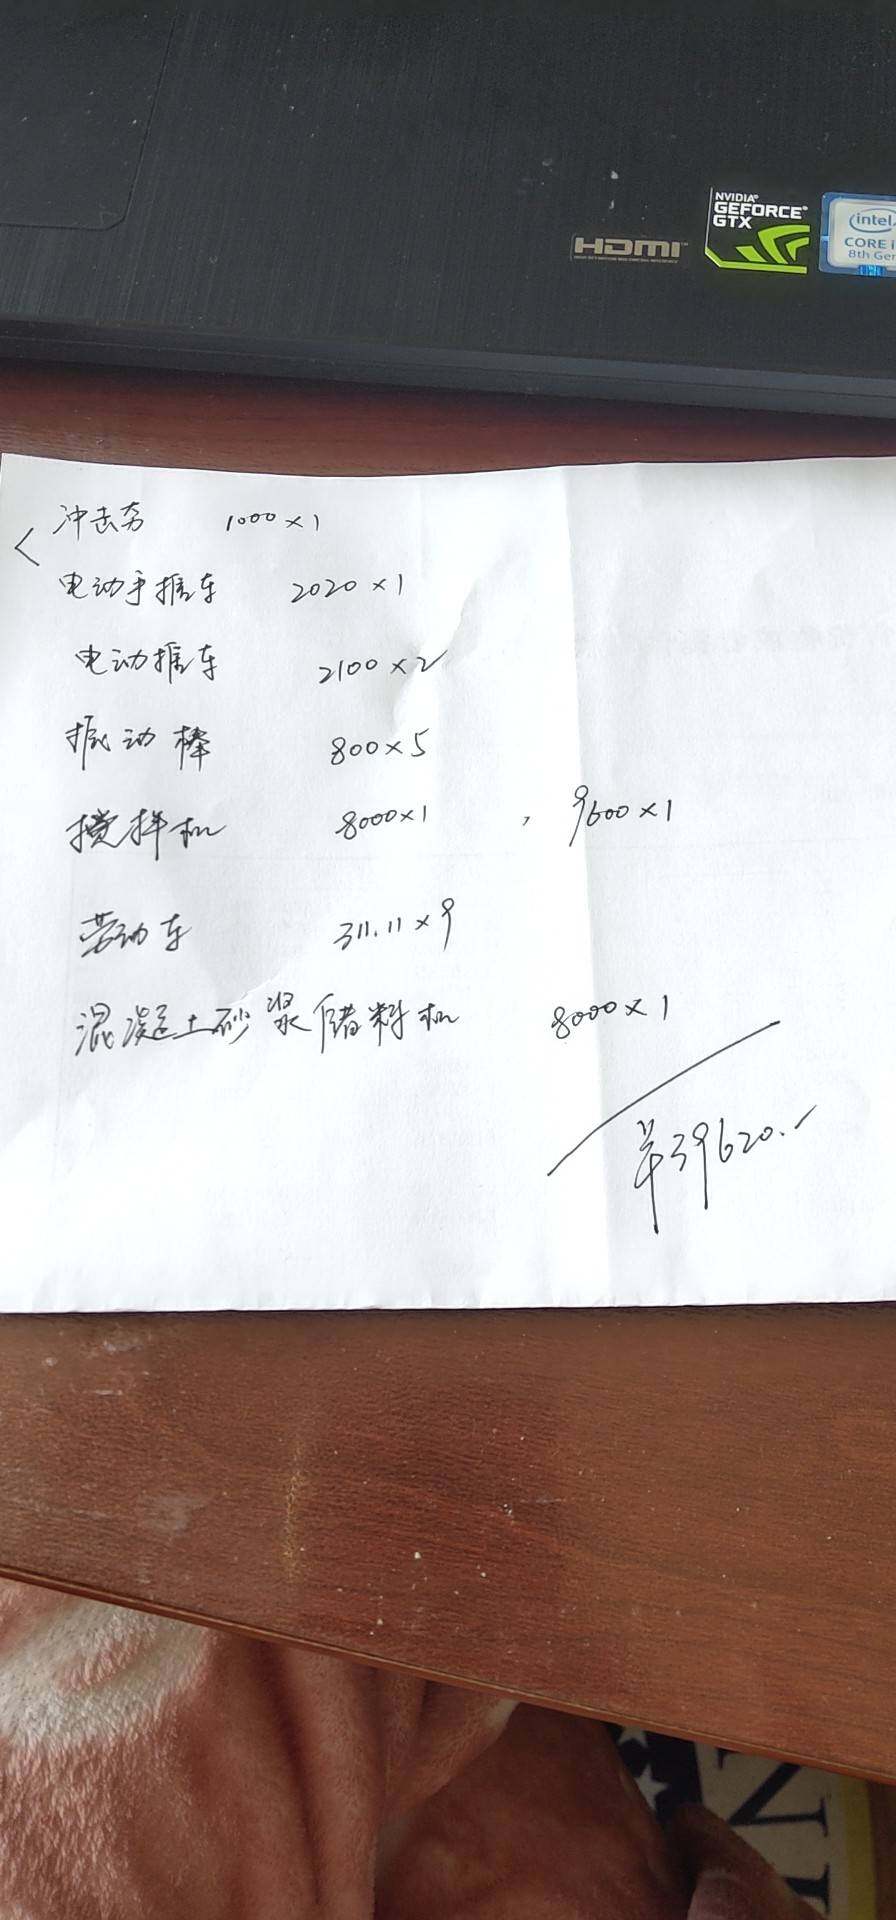 HDMI
NVIDIA
GEFORCE
GTX
intel
CORE i
8th Gen
冲击夯 1000×1
电动手推车 2020×1
电动推车 2100×2
振动棒 800×5
搅拌机 8000×1 , 9600×1
劳动车 311.11×9
混凝土砂浆储料机 8000×1
¥39620.-